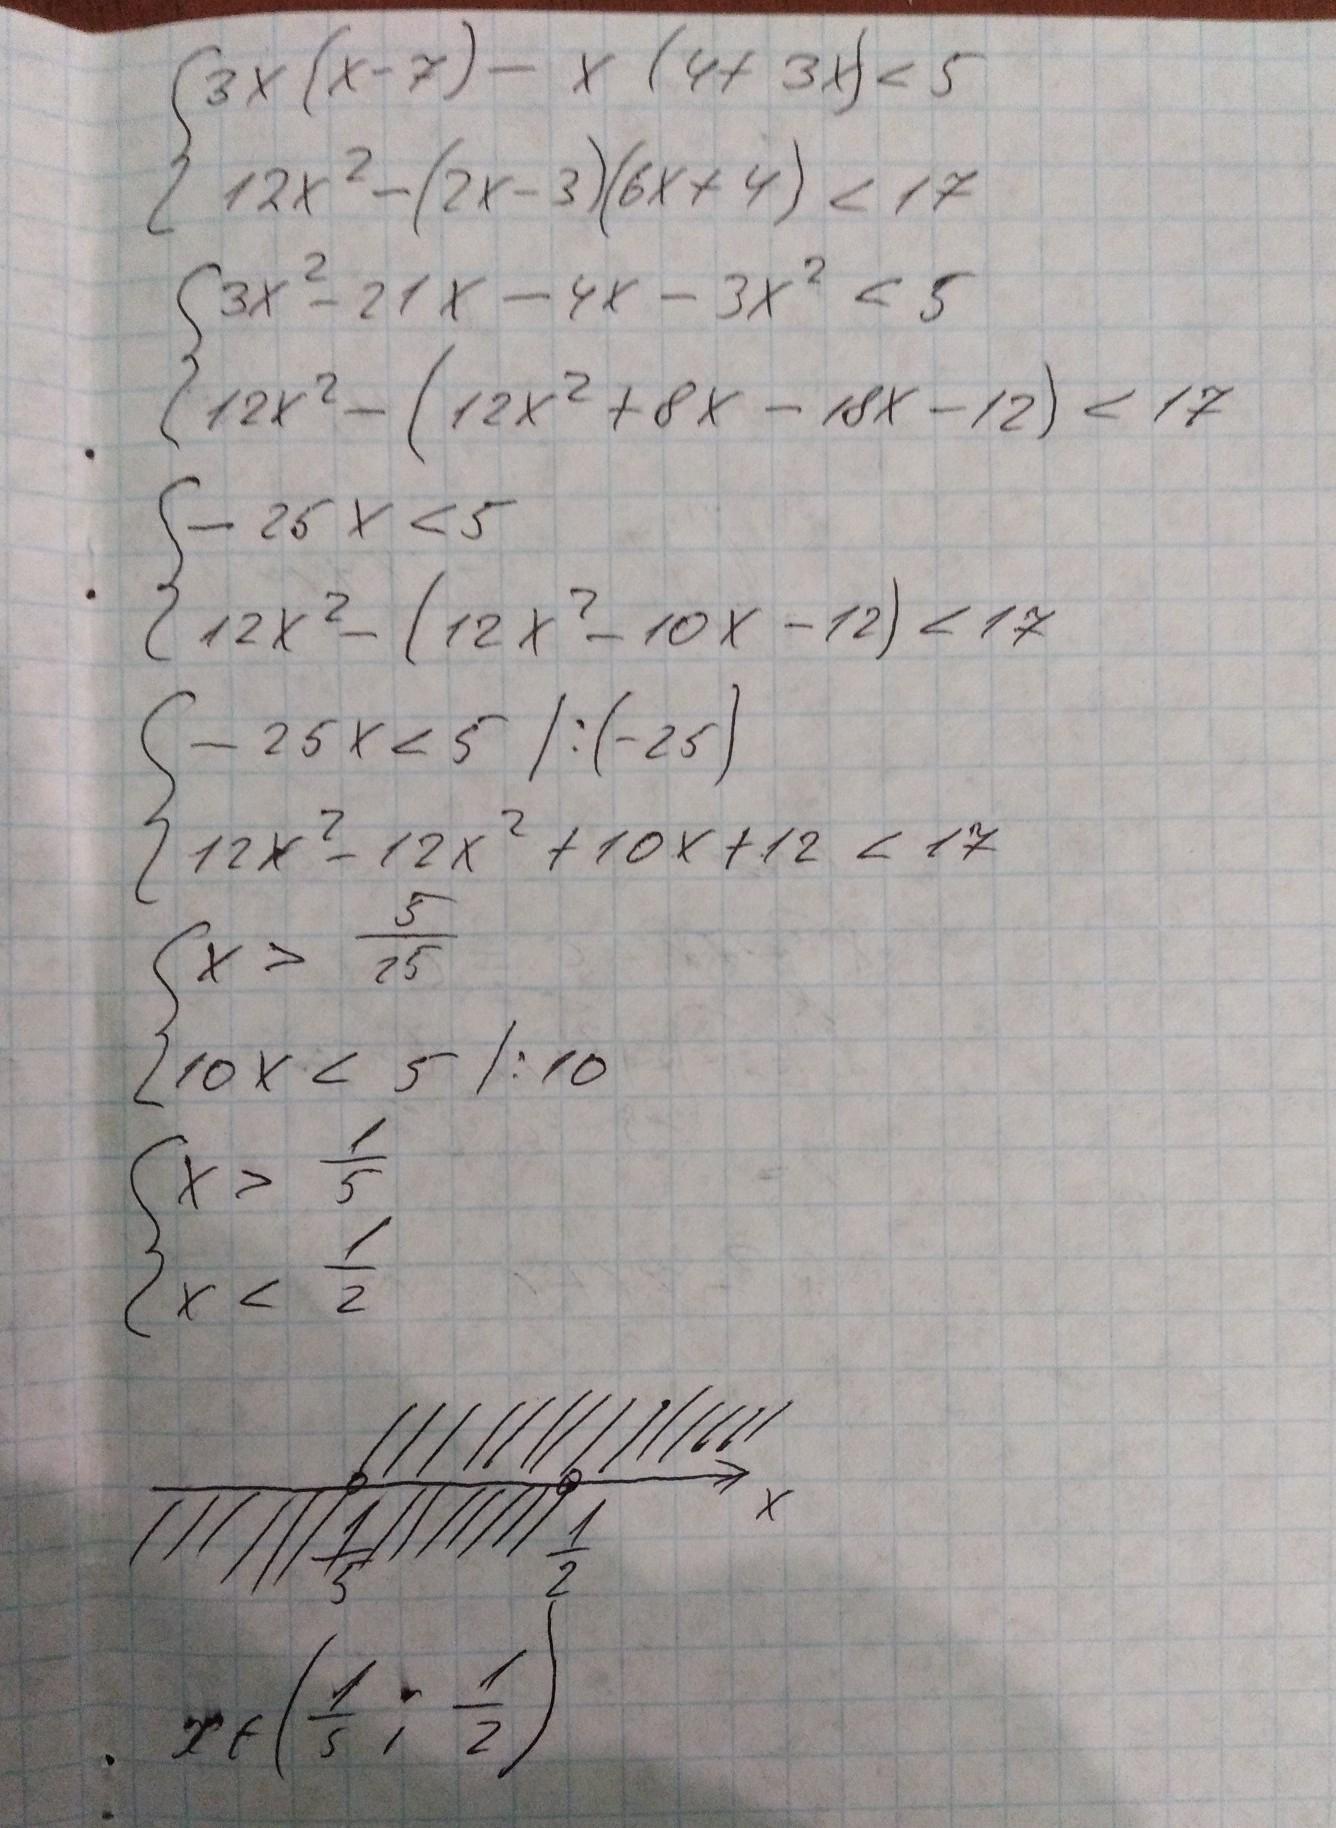 {3x(x-7) - x(4+3x) < 5
{12x² - (2x-3)(6x+4) < 17
{3x² - 21x - 4x - 3x² < 5
{12x² - (12x² + 8x - 18x - 12) < 17
{- 25x < 5
{12x² - (12x² - 10x - 12) < 17
{- 25x < 5 /:(-25)
{12x² - 12x² + 10x + 12 < 17
{x > 5/25
{10x < 5 /:10
{x > 1/5
{x < 1/2
x
1/5 1/2
x∈(1/5 ; 1/2)